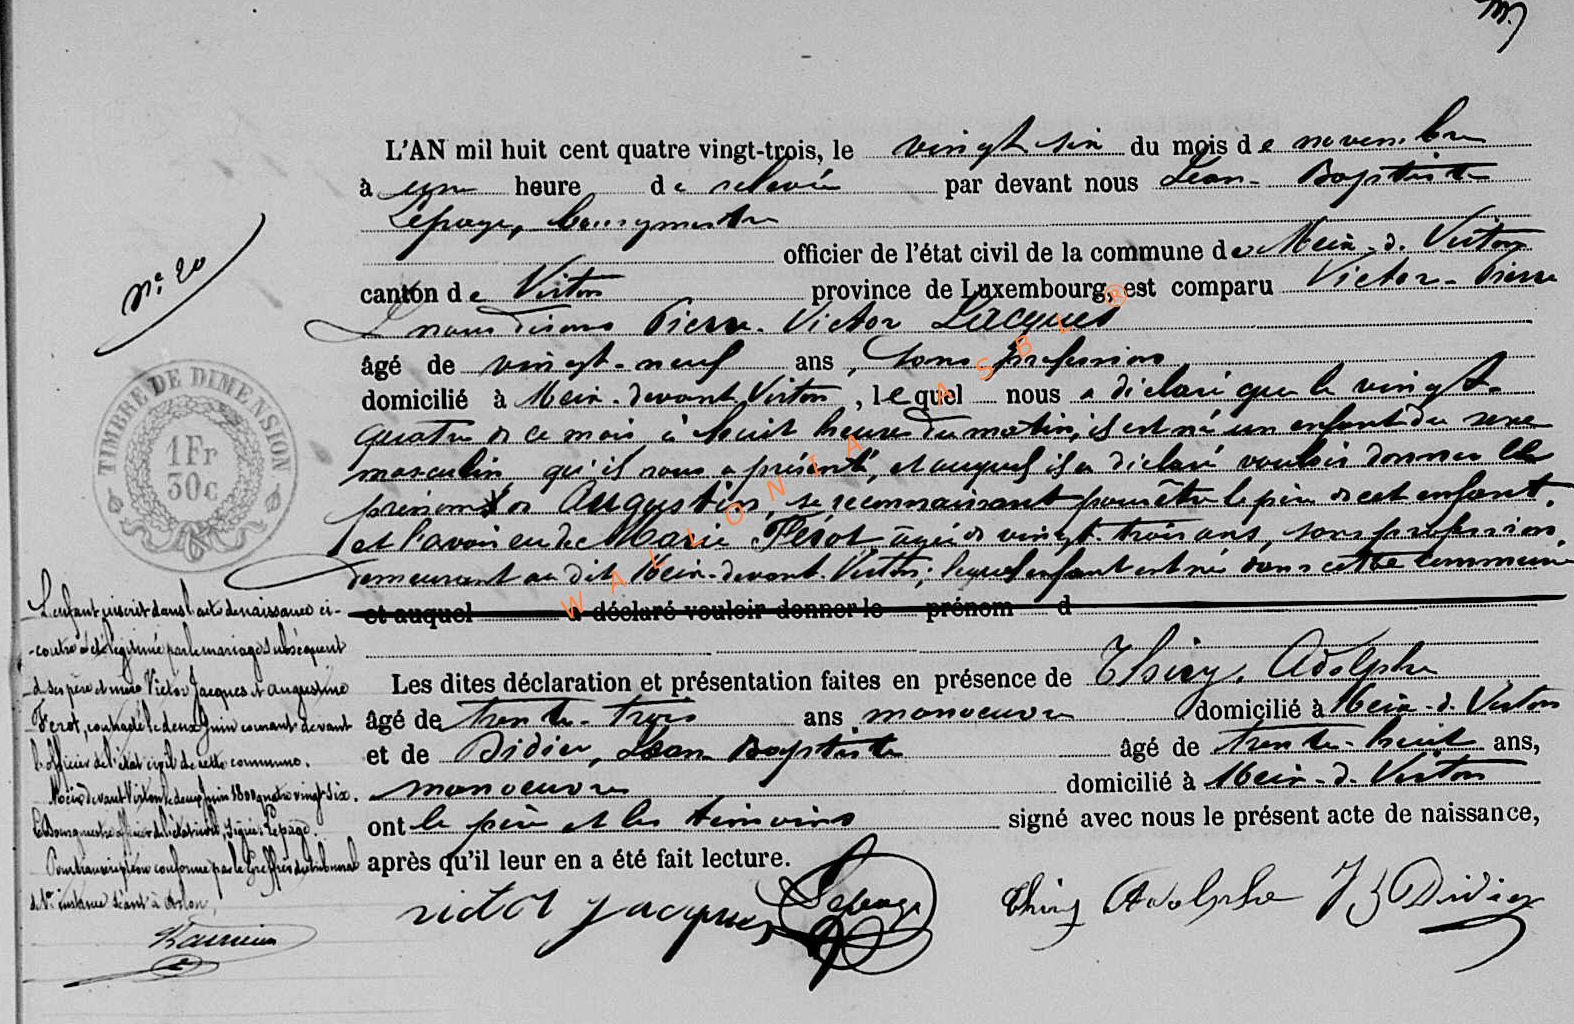 N° 20
L'AN mil huit cent quatre vingt-trois, le vingt six du mois de novembre
à une heure de relevée par devant nous Jean-Baptiste
Lepage, bourgmestre
officier de l'état civil de la commune de Meix-d. Virton
canton de Virton province de Luxembourg, est comparu Victor-Pierre
nous disons Pierre-Victor Jacques
âgé de vingt-neuf ans, sans profession
domicilié à Meix-devant-Virton, lequel nous a déclaré que le vingt-
quatre de ce mois, à huit heures du matin, il est né un enfant du sexe
masculin qu'il nous a présenté, et auquel il a déclaré vouloir donner le
prénom d' Augustin, se reconnaissant pour être le père de cet enfant,
et l'avoir eu de Marie Férot âgée de vingt-trois ans, sans profession,
demeurant au dit Meix-devant-Virton; lequel enfant est né dans cette commune
et auquel a déclaré vouloir donner le prénom d
Les dites déclaration et présentation faites en présence de Thiry, Adolphe
âgé de trente-trois ans manoeuvre domicilié à Meix-d-Virton
et de Didier, Jean Baptiste âgé de trente-huit ans,
manoeuvre domicilié à Meix-d-Virton
ont le père et les témoins signé avec nous le présent acte de naissance,
après qu'il leur en a été fait lecture.
victor jacques Lepage Thiry Adolphe J B Didier
TIMBRE DE DIMENSION
1Fr
30c
L'enfant inscrit dans l'acte de naissance ci-
-contre a été légitimé par le mariage subséquent
de ses père et mère Victor Jacques et Augustine
Ferot, contracté le deux Juin courant devant
l'officier de l'état civil de cette commune.
Meix devant Virton le deux juin 1800 quatre vingt six.
Le Bourgmestre officier de l'état civil, signé: Lepage.
Pour transcription conforme par le Greffier du tribunal
de 1re instance séant à Arlon,
WALLONIA ASBL ®